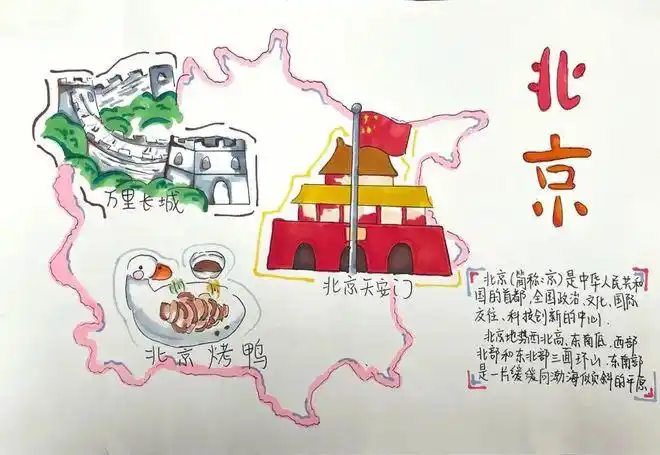 北
京
万里长城
北京天安门
北京烤鸭
北京(简称:京)是中华人民共和
国的首都,全国政治、文化、国际
交往、科技创新的中心.
北京地势西北高、东南低.西部
北部和东北部三面环山.东南部
是一片缓缓向渤海倾斜的平原